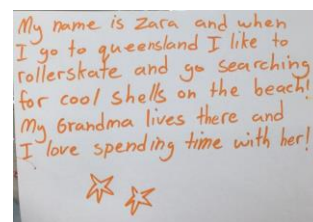 My name is Zara and when
I go to queensland I like to
rollerskate and go searching
for cool shells on the beach!
My Grandma lives there and
I love spending time with her!